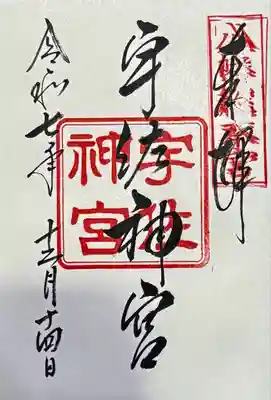 奉拝
宇佐神宮
令和七年 十二月十四日
宇佐
神宮